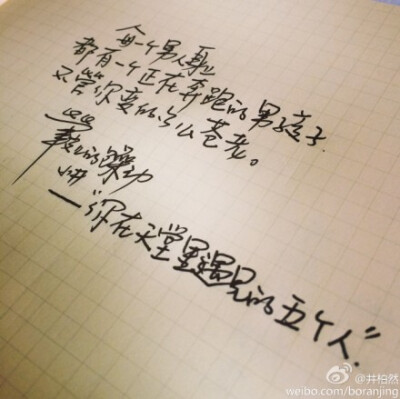 每一个男人
都有一个正在奔跑的男孩子
不管你变的多么苍老。
的躁动
—“你在天堂里遇见的五个人”
@井柏然
weibo.com/boranjing